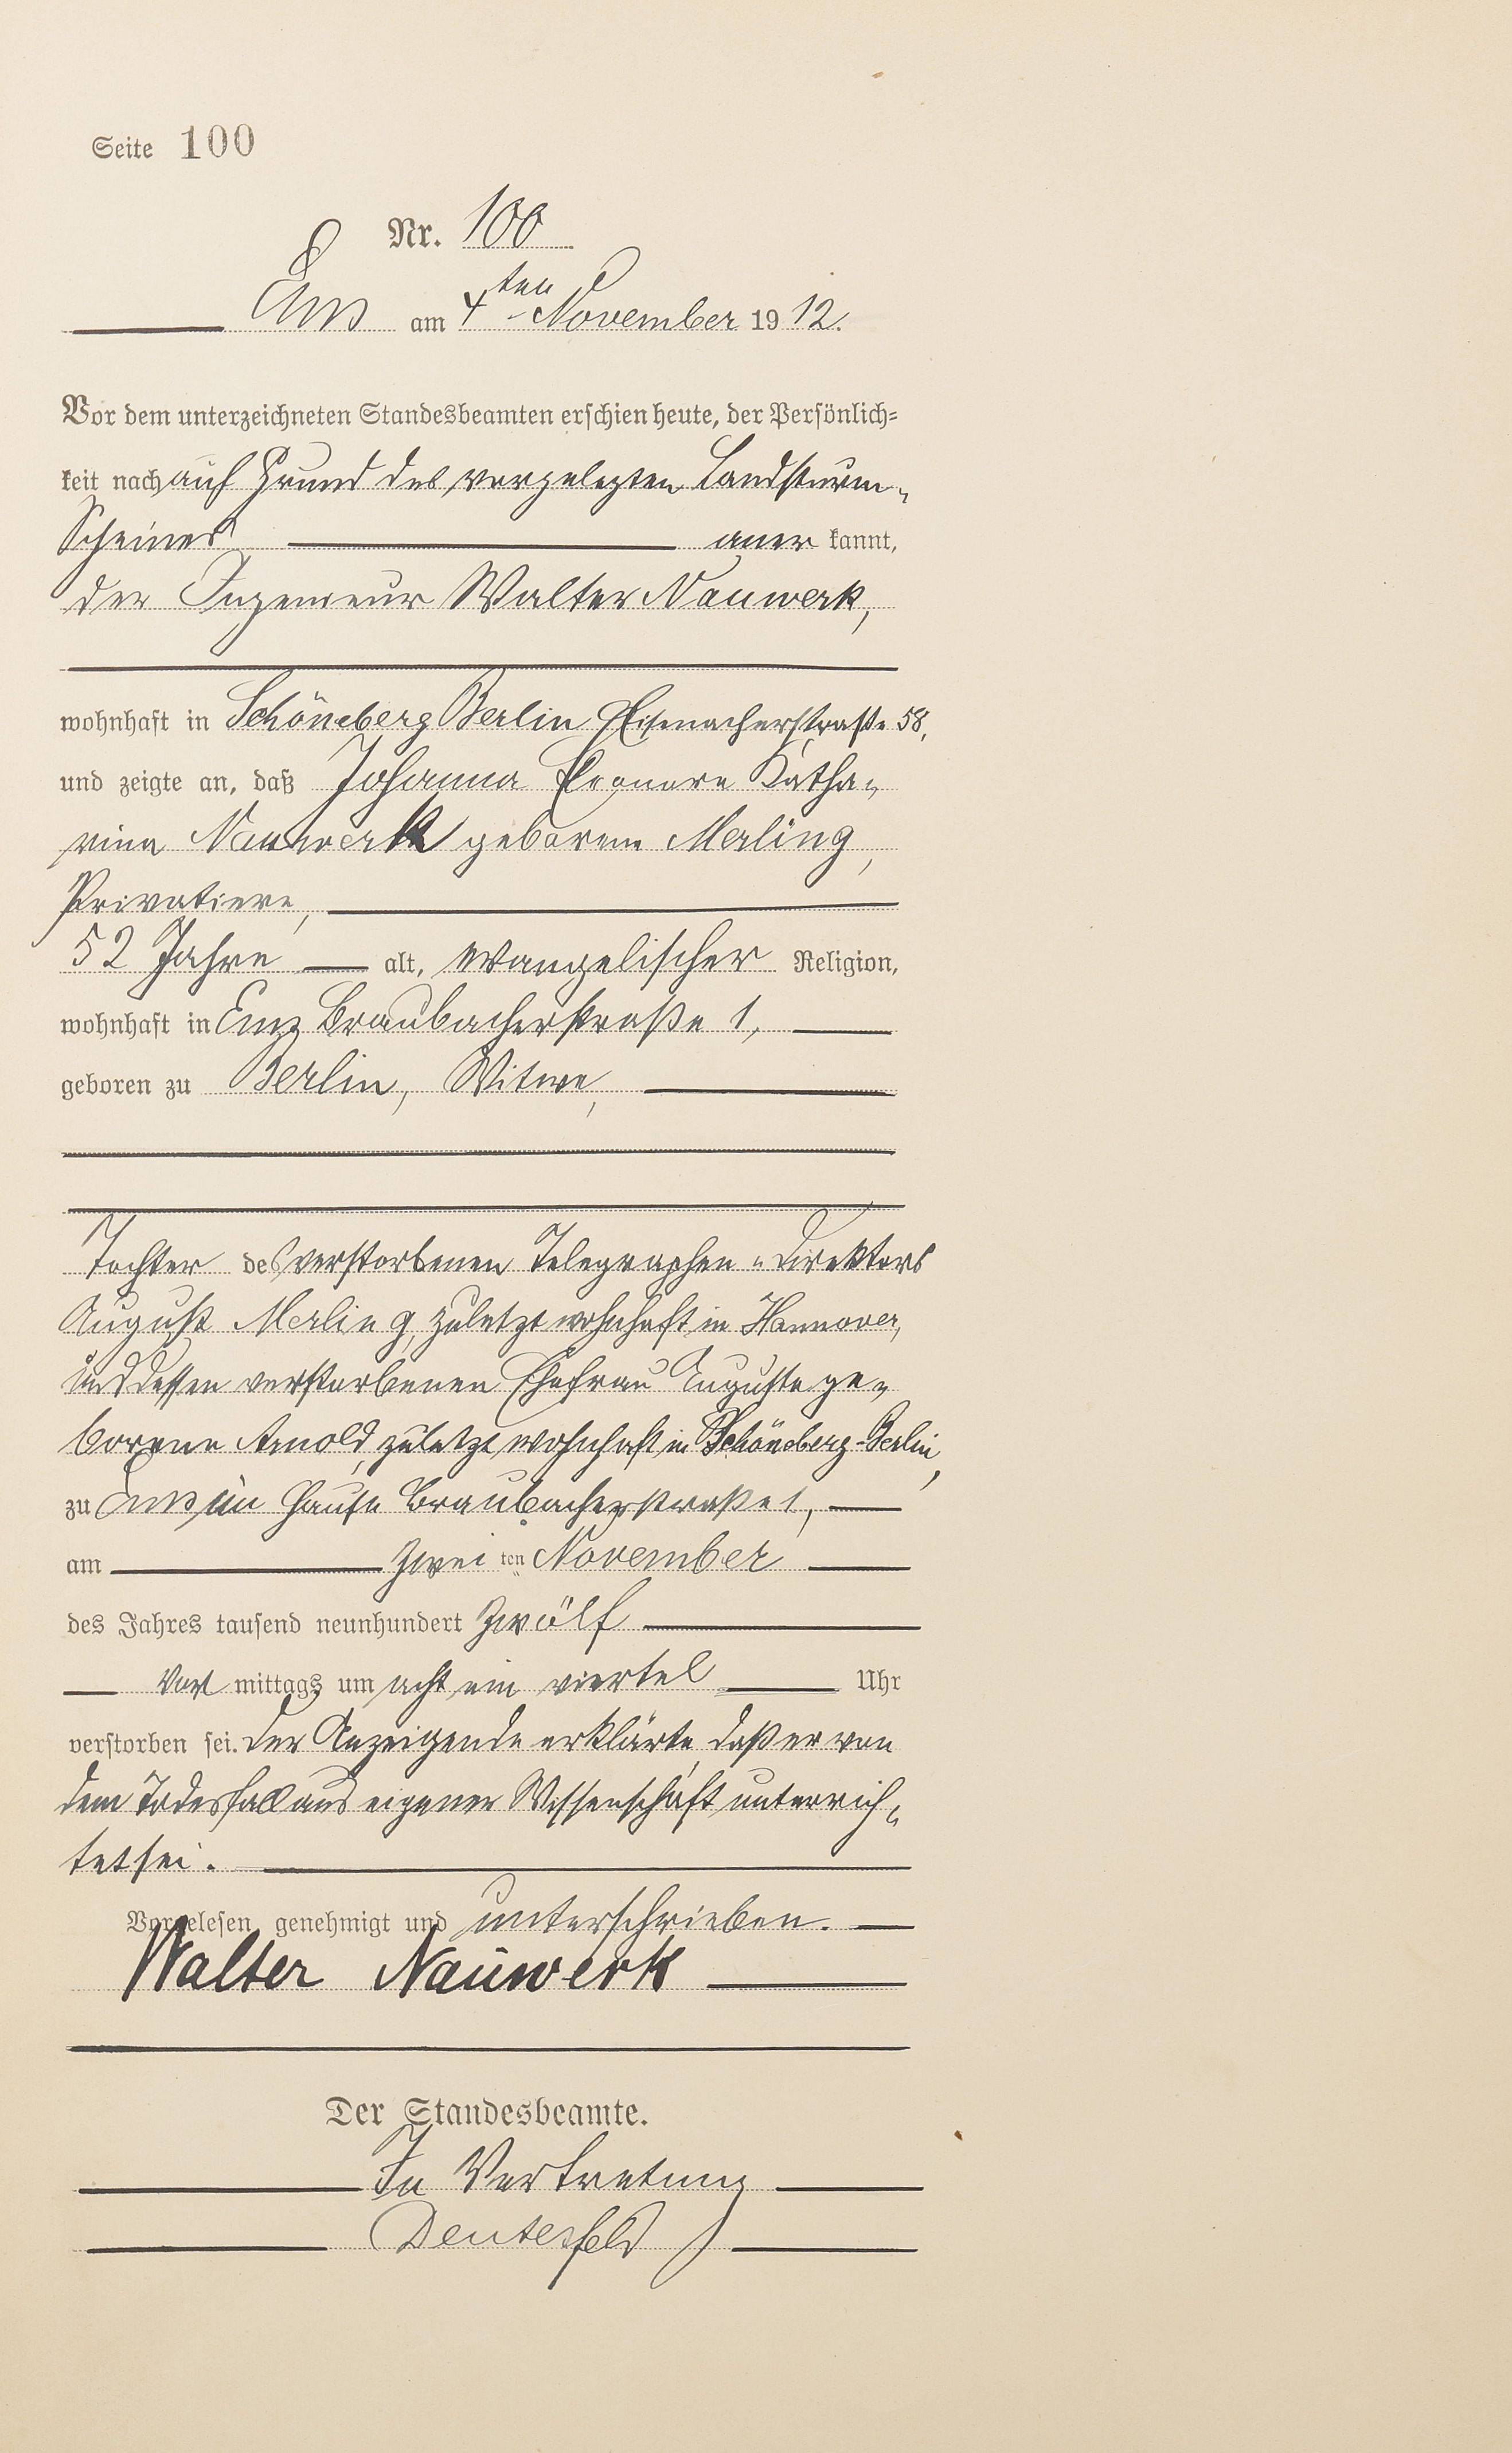 Seite 100
Nr. 100
Ems am 4ten November 1912.
Vor dem unterzeichneten Standesbeamten erschien heute, der Persönlich-
keit nach auf Grund des vorgelegten Landsturm-
Scheines anerkannt,
der Ingenieur Walter Nauwerk,
wohnhaft in Schöneberg Berlin Eisenacherstraße 58,
und zeigte an, daß Johanna Eleonore Katha-
rina Nauwerk geborene Merling,
Privatiere,
52 Jahre alt, evangelischer Religion,
wohnhaft in Ems Braubacherstraße 1,
geboren zu Berlin, Witwe,
Tochter des verstorbenen Telegraphen-Direktors
August Merling, zuletzt wohnhaft in Hannover,
und dessen verstorbenen Ehefrau Auguste ge-
borene Arnold, zuletzt wohnhaft in Schöneberg-Berlin,
zu Ems im Hause Braubacherstraße 1,
am zweiten November
des Jahres tausend neunhundert zwölf
Vormittags um acht ein viertel Uhr
verstorben sei. Der Anzeigende erklärte, daß er von
dem Todesfall aus eigener Wissenschaft unterrich-
tet sei.
Vorgelesen, genehmigt und unterschrieben.
Walter Nauwerk
Der Standesbeamte.
In Vertretung
Deutesfeld